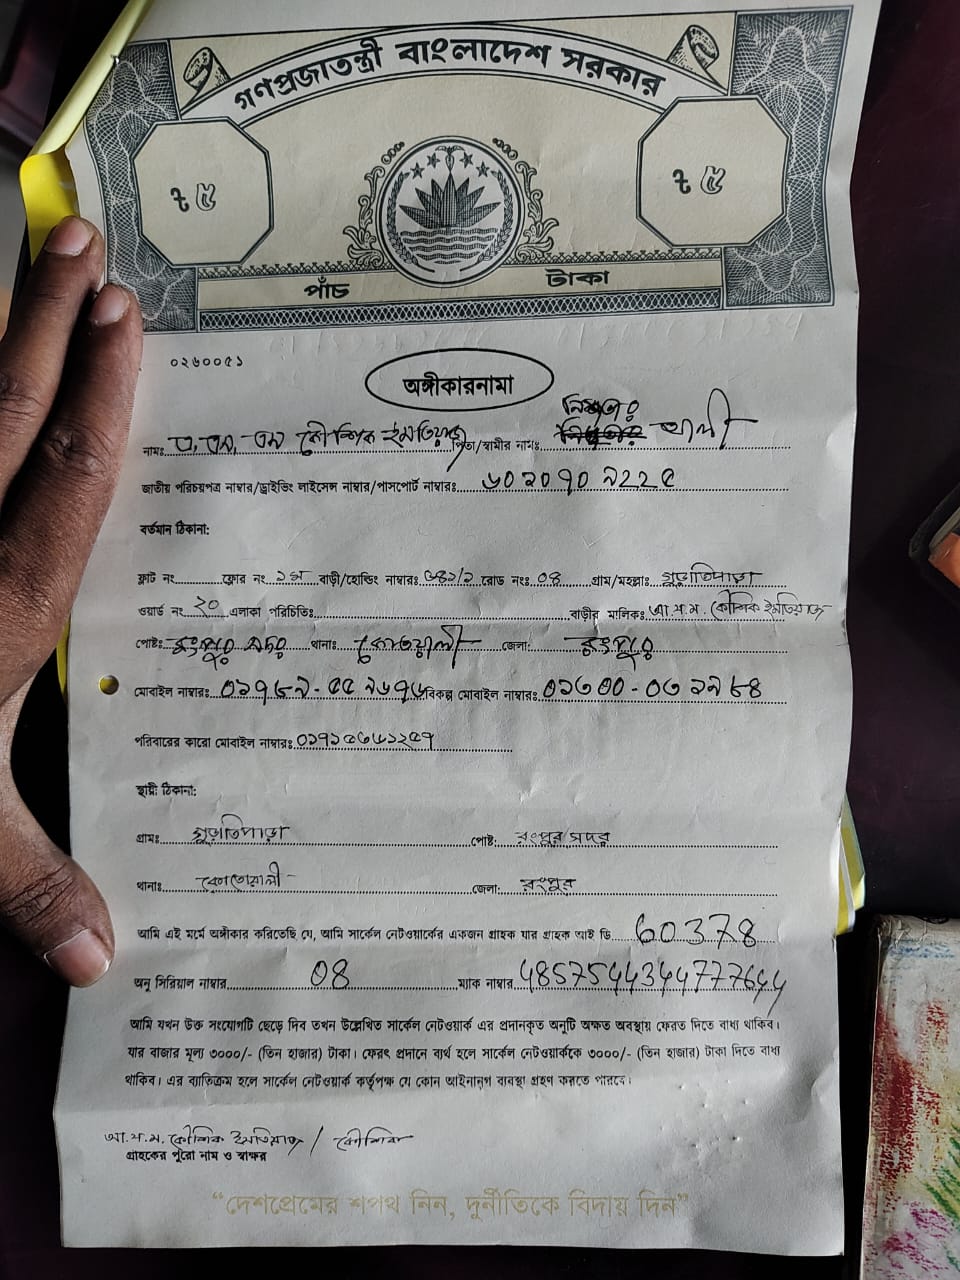 গণপ্রজাতন্ত্রী বাংলাদেশ সরকার
৳ ৫ ৳ ৫
পাঁচ টাকা
০২৬০০৫১
অঙ্গীকারনামা
নামঃ এ, এস, এম কৌশিক ইমতিয়াজ পিতা/স্বামীর নামঃ আলী
জাতীয় পরিচয়পত্র নাম্বার/ড্রাইভিং লাইসেন্স নাম্বার/পাসপোর্ট নাম্বারঃ
বর্তমান ঠিকানা:
ফ্লাট নং ফ্লোর নং ১ম বাড়ী/হোল্ডিং নাম্বারঃ রোড নংঃ ০৪ গ্রাম/মহল্লাঃ গুড়াতিপাড়া
ওয়ার্ড নং ২০ এলাকা পরিচিতিঃ বাড়ীর মালিকঃ এ.স.ম. কৌশিক ইমতিয়াজ
পোষ্টঃ রংপুর সদর থানাঃ কোতয়ালী জেলা: রংপুর
মোবাইল নাম্বারঃ বিকল্প মোবাইল নাম্বারঃ
পরিবারের কারো মোবাইল নাম্বারঃ
স্থায়ী ঠিকানা:
গ্রামঃ গুড়াতিপাড়া পোষ্ট: রংপুর সদর
থানাঃ কোতোয়ালী জেলা: রংপুর
আমি এই মর্মে অঙ্গীকার করিতেছি যে, আমি সার্কেল নেটওয়ার্কের একজন গ্রাহক যার গ্রাহক আই ডি 60378
অনু সিরিয়াল নাম্বার 08 ম্যাক নাম্বার
আমি যখন উক্ত সংযোগটি ছেড়ে দিব তখন উল্লেখিত সার্কেল নেটওয়ার্ক এর প্রদানকৃত অনুটি অক্ষত অবস্থায় ফেরত দিতে বাধ্য থাকিব।
যার বাজার মূল্য ৩০০০/- (তিন হাজার) টাকা। ফেরৎ প্রদানে ব্যর্থ হলে সার্কেল নেটওয়ার্ককে ৩০০০/- (তিন হাজার) টাকা দিতে বাধ্য
থাকিব। এর ব্যতিক্রম হলে সার্কেল নেটওয়ার্ক কর্তৃপক্ষ যে কোন আইনানুগ ব্যবস্থা গ্রহণ করতে পারবে।
আ.স.ম. কৌশিক ইমতিয়াজ / কৌশিক
গ্রাহকের পুরো নাম ও স্বাক্ষর
“দেশপ্রেমের শপথ নিন, দুর্নীতিকে বিদায় দিন”